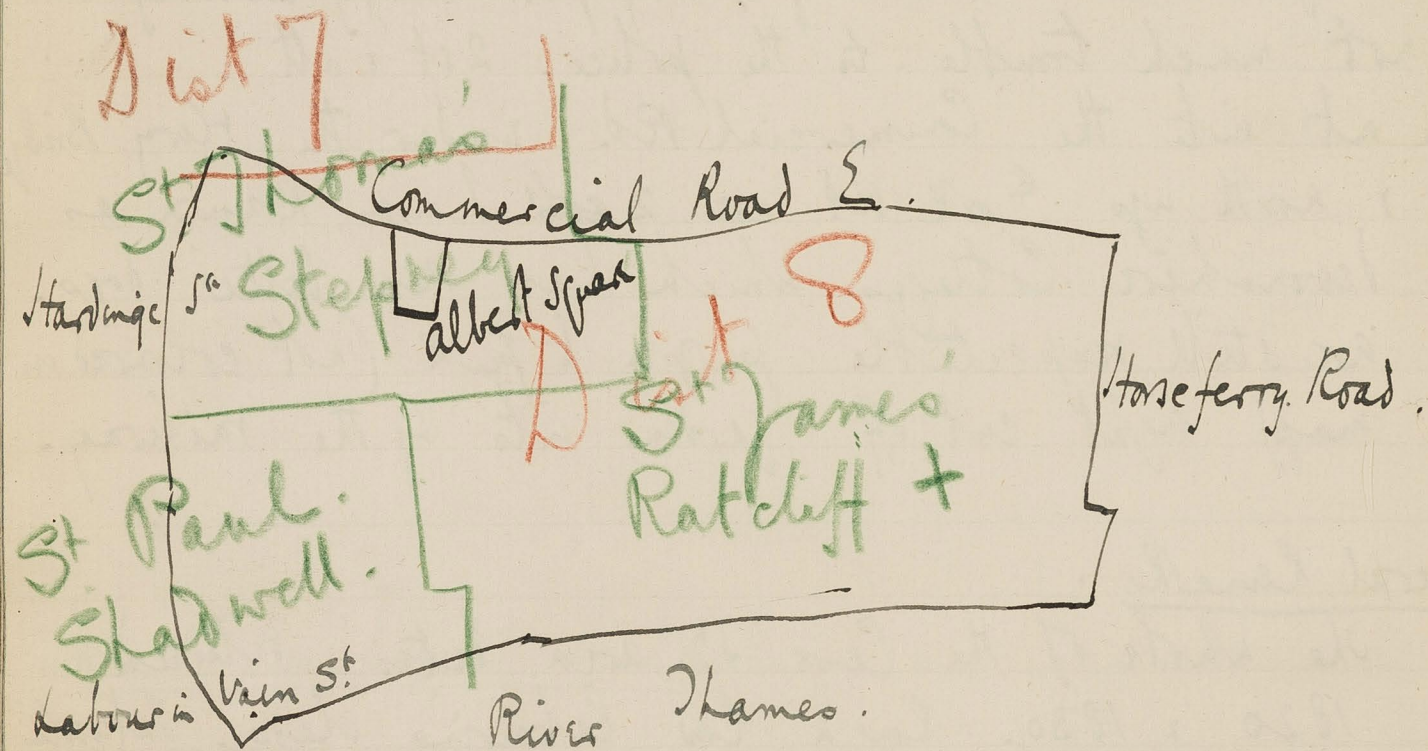 Dist 7
St Thomas
Commercial Road E.
Hardinge St
Stepney
Albert Square
Dist 8
St James
Ratcliff +
Horseferry Road.
St Paul.
Shadwell.
Labour in Vain St.
River Thames.